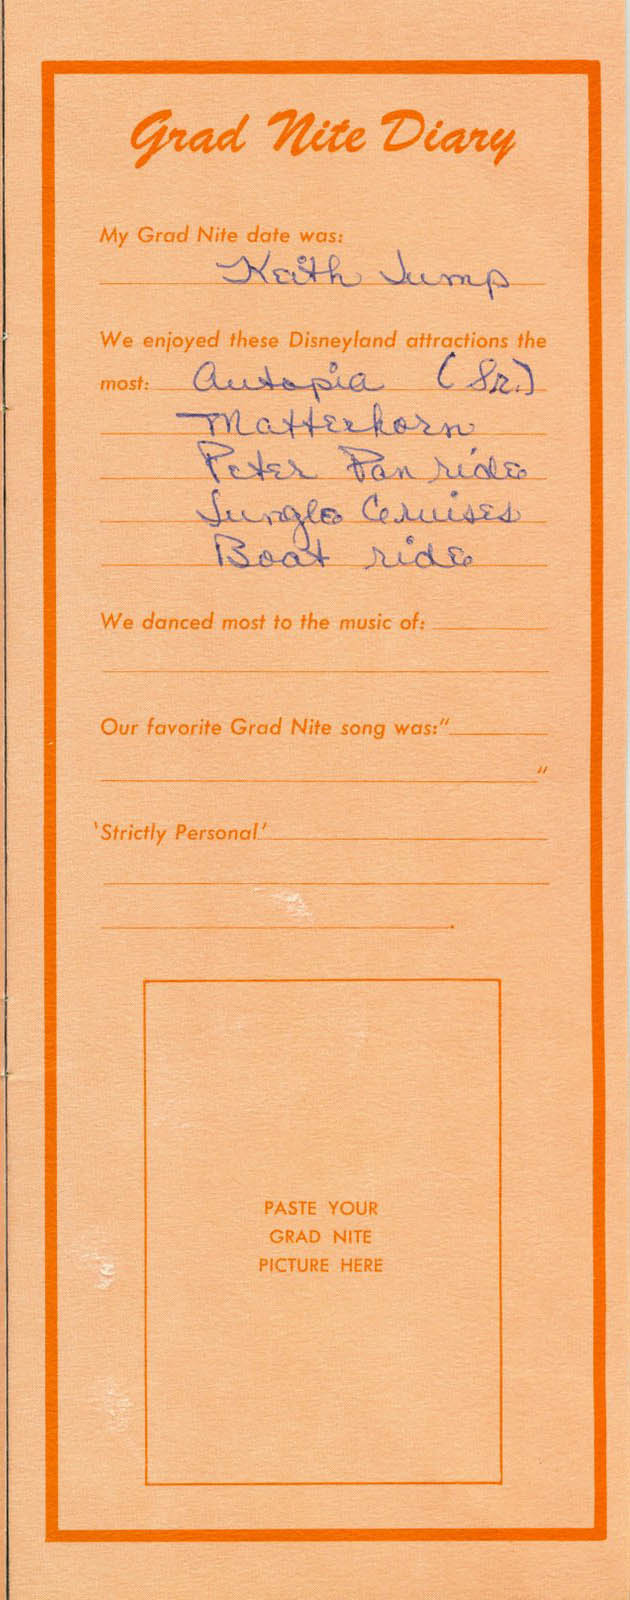 Grad Nite Diary
My Grad Nite date was:
Keith Jump
We enjoyed these Disneyland attractions the
most: Autopia (Sr.)
Matterhorn
Peter Pan ride
Jungle Cruises
Boat ride
We danced most to the music of:
Our favorite Grad Nite song was:"
"
'Strictly Personal'
.
PASTE YOUR
GRAD NITE
PICTURE HERE